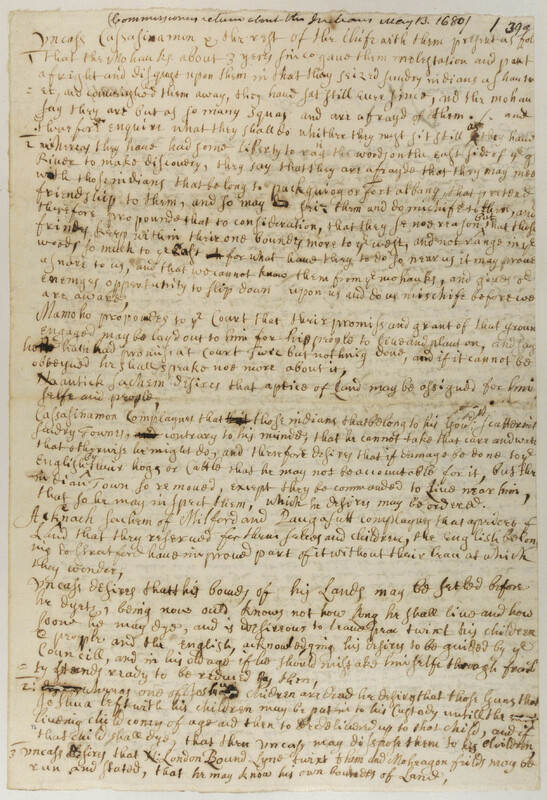 (Commissioners return about the Indians May 13. 1680) / 39a
Uncass Casasinamon & the rest of the Chife with them present as fol
1 that the Mohauks about 3 yeers since gave them molestation and put
afright and disgust upon them in that they seized sundry indians as hunters
&c, and conveighed them away, they have sat still ever since, nd the mohau
say they are but as so many Squas and are afrayd of them and
therefore enquire what they shall do whither they must sit still as they have
2 whereas they have had some liberty to rang the woods on the east side of ye g
River to make discovery, they say that they are afrayde that they may meet
with those indians that belong to or fort albany that pretend
friendship to them, and so may seiz them and do mischife to them, and
therefore propounde that to consideration, that they se no reason but that those
friends keep within their one bounds more to ye west, and not range in ye
woods so much to ye East for what have they to do so near us it may prove
as nare to us, and that we cannot know them from ye mohauks, and gives ye
enemyes opportunity to slip down upon us and do us mischife before we
are aware,
Mamoho propoundes to ye Court that their promiss and grant of that groun
engaged may be layd out to him for his people to live and plant on, and say
he hath had promiss at Court twice but nothing done, and if it cannot be
obteyned he shall speake noe more about it,
Nantick sachem desires that a peice of Land may be assigned for him
selfe and people,
Casasinamon Complaynes that those indians that belong to his are scattered in
sundry Townes, contrary to his minde that he cannot take that care and
that otherwise he might do, and therefore desires that if damage be done to ye
English by their hoggs or Cattle that he may not be accountable for it, but the
indian Town so removed, except they be commanded to Live near him,
that so he may inspect them, which he desires may be ordered.
sachem of Milford and Paugasutt complaynes that a peice of
Land that they reserved for them selves and children, the English belon
ing to Stratford have improved part of it without their leave at which
they wonder,
Uncass desires that his bounds of his Lands may be setled before
he dyes, being now ould knows not how long he shall live and how
soone he may dye, and is desireous to leave peac twixt his children
& people and the English, acknowledging his desires to be guided by ye
Councill, and in his old age if he should mistake himselfe through frail
ty stands ready to be reduced by them,
2: whereas one of Joshuas children are dead he desires that those guns that
Joshua left with his children may be put into his Custody untill the
liveing child comes of age and then to be delivered up to that child, and if
that child shall dye, that then Uncass may dispose them to his children,
3 Uncass desires that N: London Bound Lyne twixt them and Mohegon fields may be
run and stated, that he may know his own bounds of Land,